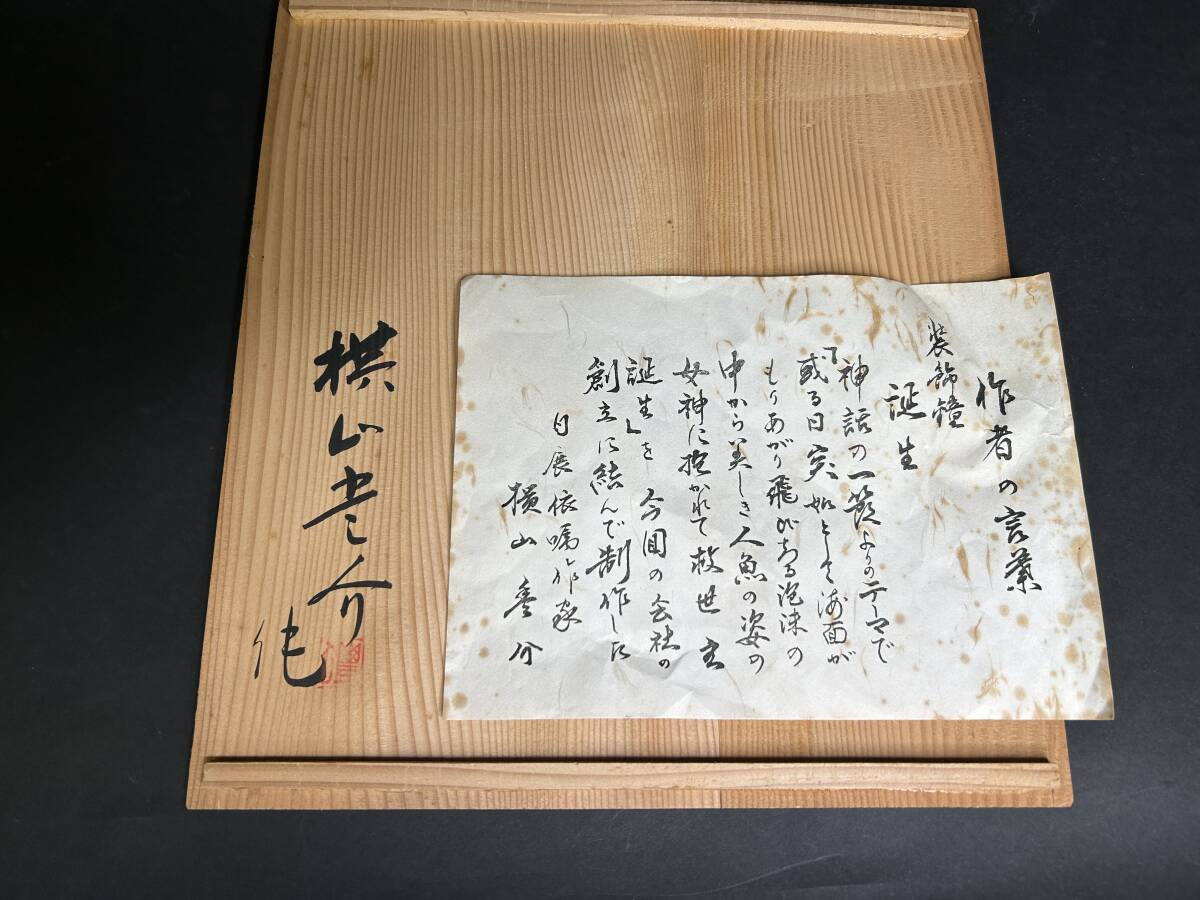 作者の言葉
装飾鐘
誕生
「神話の一節よりのテーマで
或る日突如として海面が
もりあがり飛びちる泡沫の
中から美しき人魚の姿の
女神に抱かれて救世主
誕生」を今回の会社の
創立に結んで制作した
日展依嘱作家
横山喜介
横山 介
作